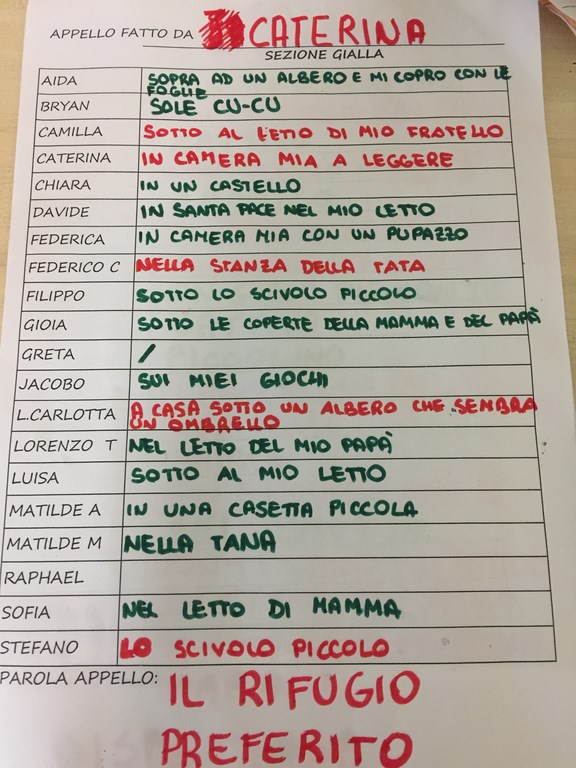 APPELLO FATTO DA CATERINA
SEZIONE GIALLA
AIDA SOPRA AD UN ALBERO E MI COPRO CON LE
FOGLIE
BRYAN SOLE CU-CU
CAMILLA SOTTO AL LETTO DI MIO FRATELLO
CATERINA IN CAMERA MIA A LEGGERE
CHIARA IN UN CASTELLO
DAVIDE IN SANTA PACE NEL MIO LETTO
FEDERICA IN CAMERA MIA CON UN PUPAZZO
FEDERICO C NELLA STANZA DELLA TATA
FILIPPO SOTTO LO SCIVOLO PICCOLO
GIOIA SOTTO LE COPERTE DELLA MAMMA E DEL PAPÀ
GRETA /
JACOBO SUI MIEI GIOCHI
L.CARLOTTA A CASA SOTTO UN ALBERO CHE SEMBRA
UN OMBRELLO
LORENZO T NEL LETTO DEL MIO PAPÀ
LUISA SOTTO AL MIO LETTO
MATILDE A IN UNA CASETTA PICCOLA
MATILDE M NELLA TANA
RAPHAEL
SOFIA NEL LETTO DI MAMMA
STEFANO LO SCIVOLO PICCOLO
PAROLA APPELLO: IL RIFUGIO
PREFERITO